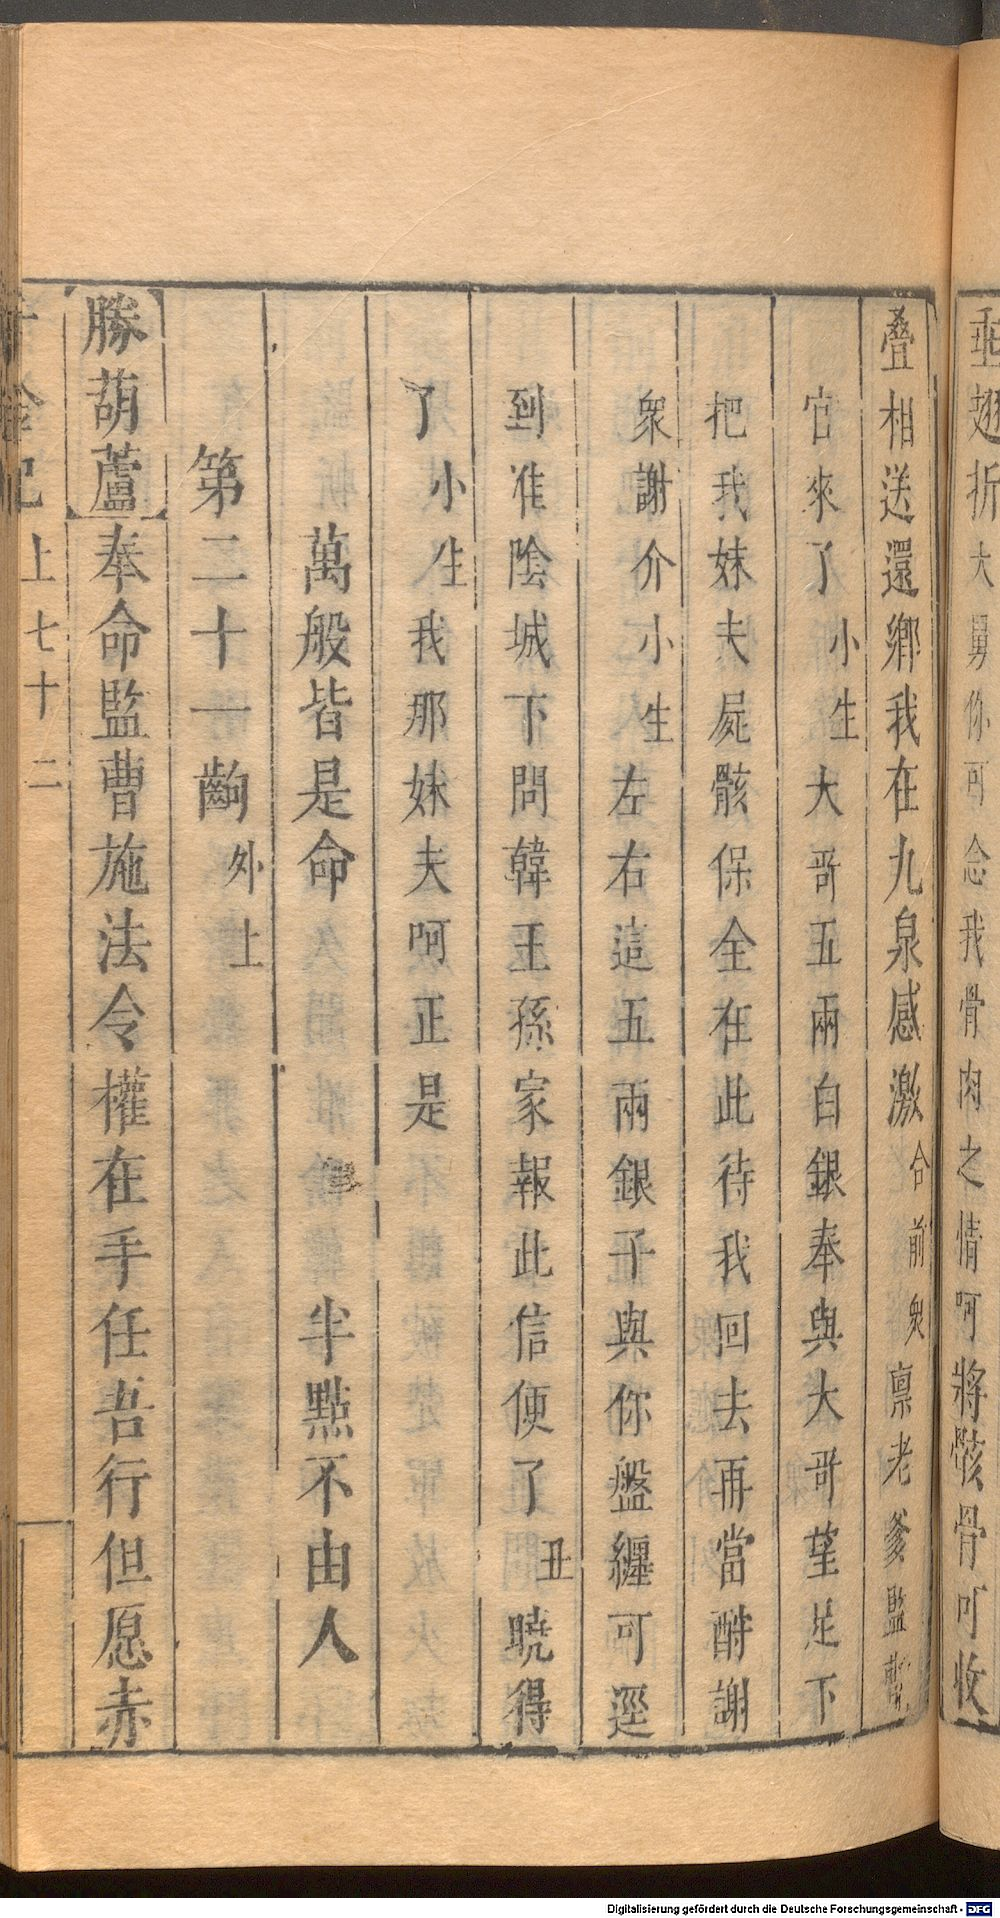 垂翅折大舅你可念我骨肉之情呵將骸骨可收
叠相送還鄉我在九泉感激合前衆禀老爹監斬
官來了小生大哥五兩白銀奉與大哥望足下
把我妹夫屍骸保全在此待我回去再當酧謝
衆謝介小生左右這五兩銀子與你盤纏可逕
到淮陰城下問韓王孫家報此信便了丑曉得
了小生我那妹夫呵正是
萬般皆是命 半點不由人
第二十一齣外上
勝葫蘆奉命監曹施法令權在手任吾行但愿赤
千金記 上 七十二
Digitalisierung gefördert durch die Deutsche Forschungsgemeinschaft - DFG